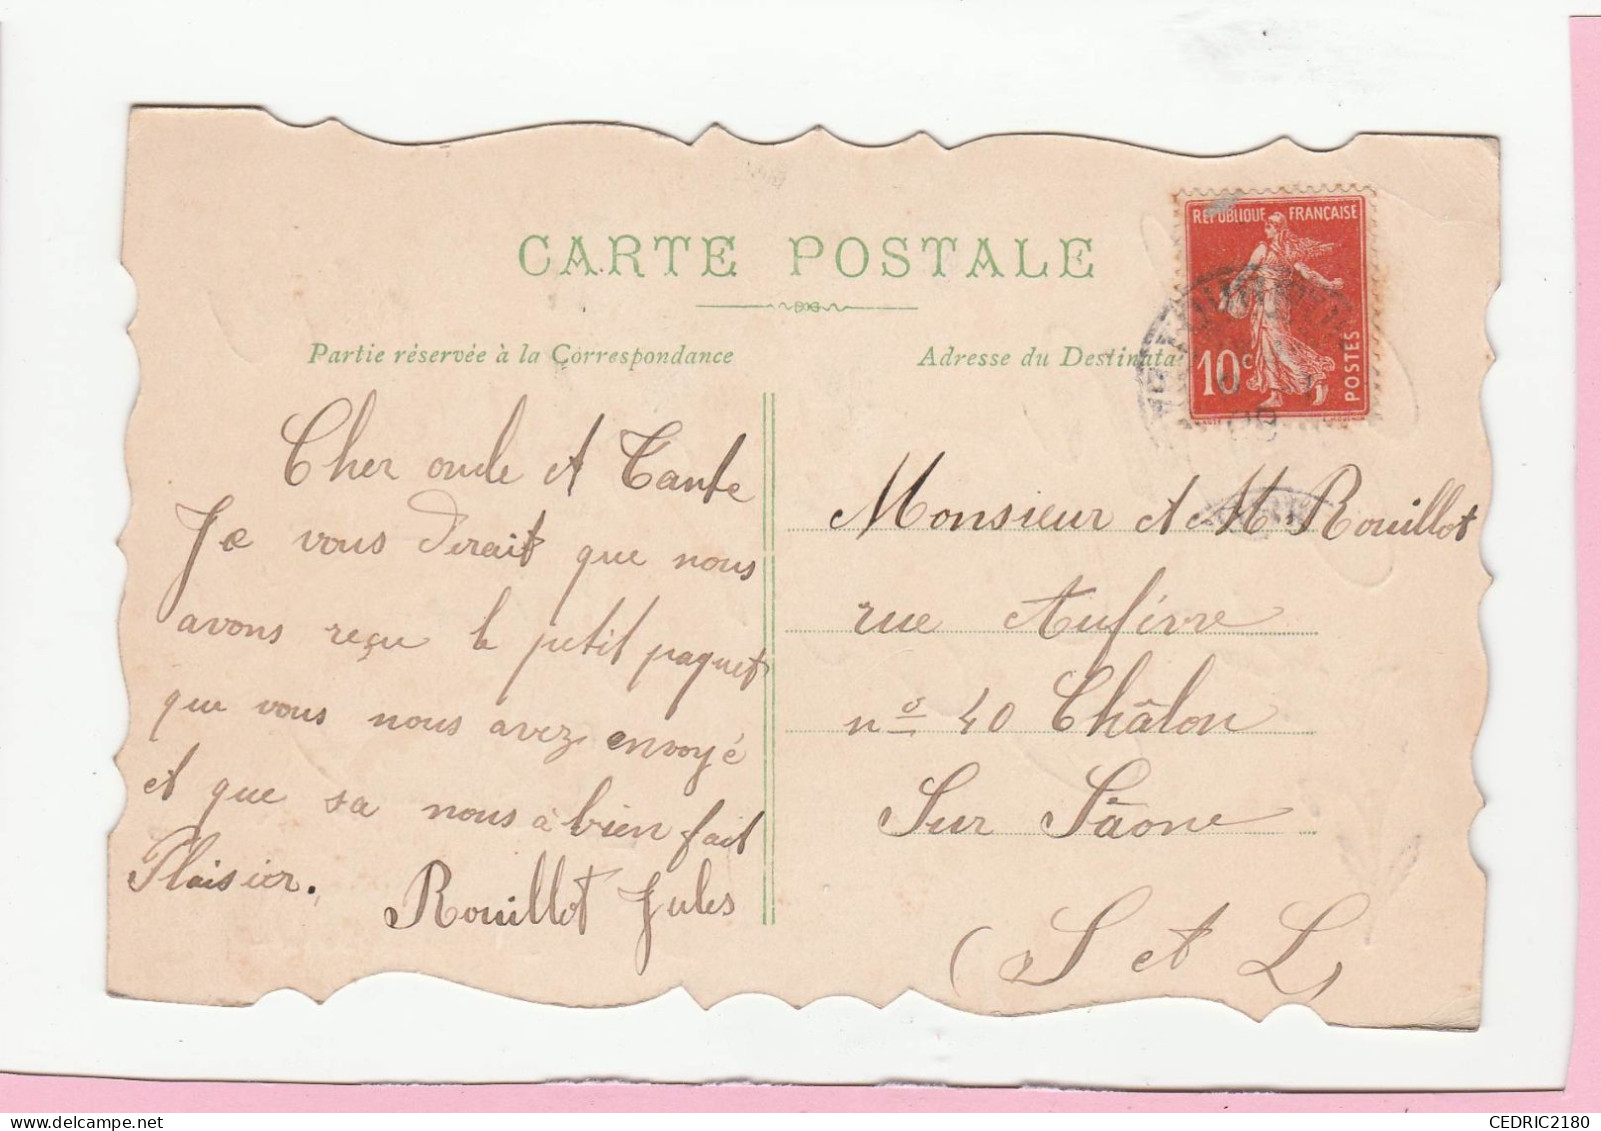 CARTE POSTALE
Partie réservée à la Correspondance
Adresse du Destinata
REPUBLIQUE FRANÇAISE
10c
POSTES
Cher oncle et Tante
Je vous dirait que nous
avons reçu le petit paquet
que vous nous avez envoyé
et que sa nous à bien fait
Plaisier.
Rouillot Jules
Monsieur et M Rouillot
rue Aufèvre
nº 40 Châlon
Sur Sâone
(S et L)
CEDRIC2180